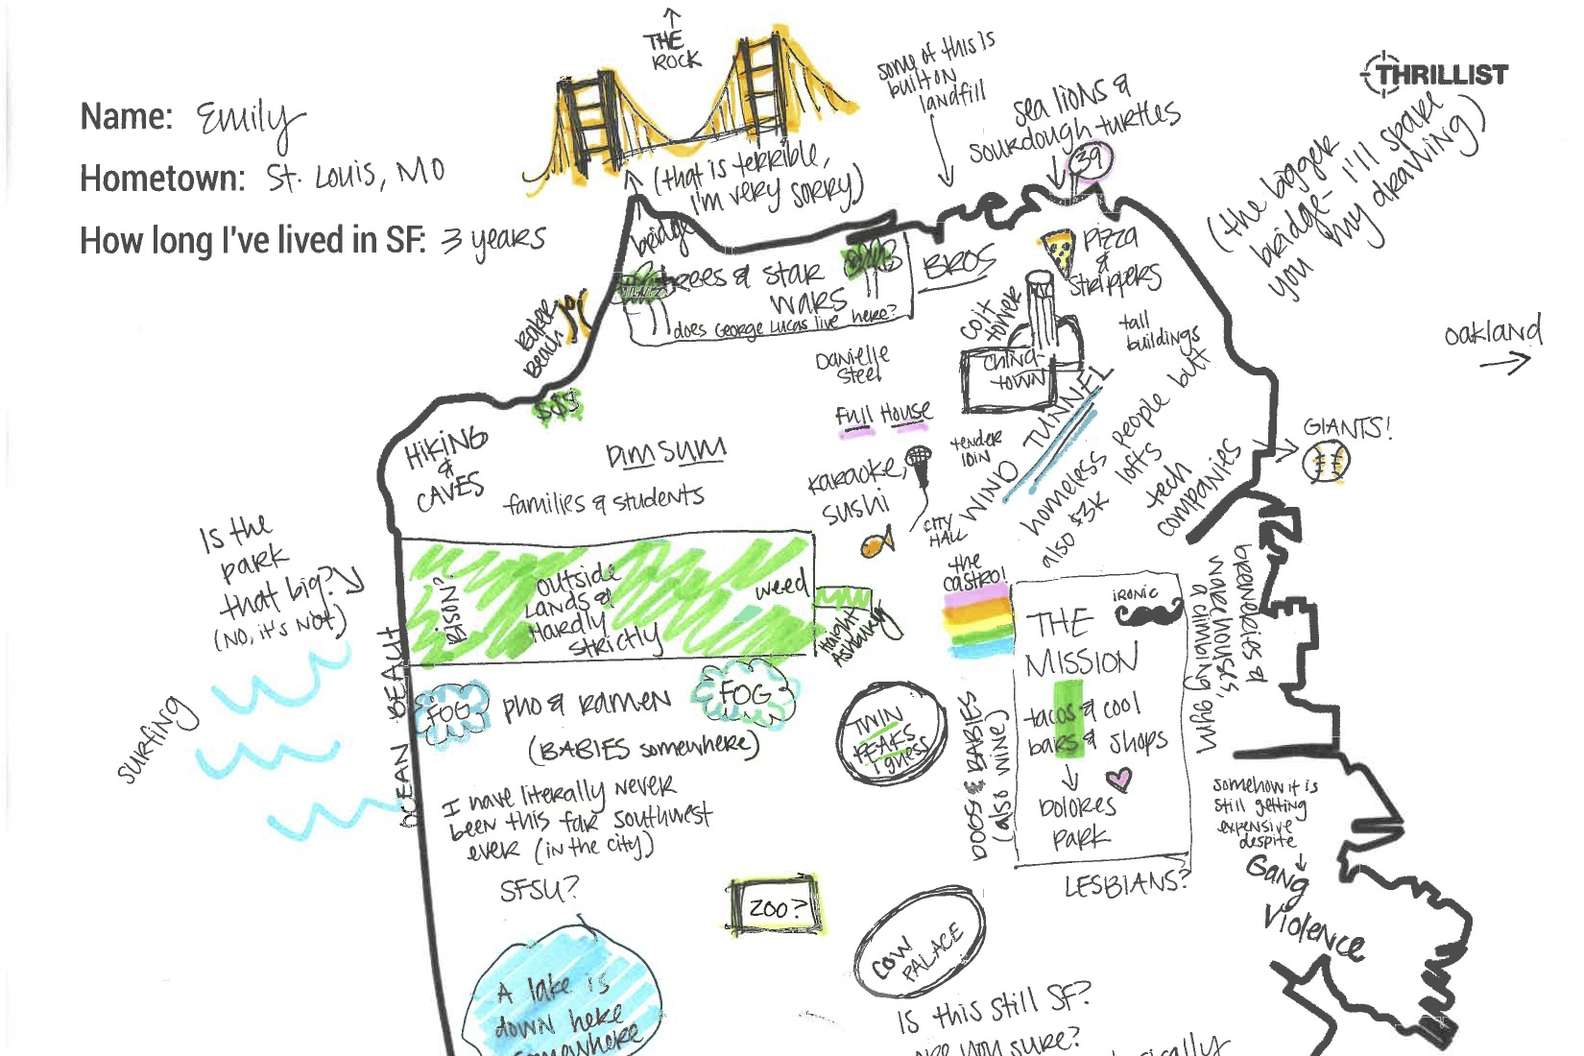 THRILLIST
Name: Emily
Hometown: St. Louis, MO
How long I've lived in SF: 3 years
THE
ROCK
(that is terrible,
I'm very sorry)
bridge
some of this is
built on
landfill
sea lions &
sourdough turtles
39
(the bigger
bridge- I'll spare
you my drawing)
trees & star
wars
does George Lucas live here?
BROS
Pizza
&
strippers
Baker
Beach
$$$
coit
tower
China-
town
tall
buildings
oakland
Danielle
Steel
Full House
HIKING
&
CAVES
DIM SUM
families & students
karaoke,
sushi
tender
loin
CITY
HALL
WIND TUNNEL
homeless people but
also $3k lofts
tech
companies
GIANTS!
Is the
park
that big?
(NO, it's NOT)
BISON?
outside
Lands &
Hardly
strictly
weed
Haight
Ashbury
the
castro!
THE
MISSION
ironic
tacos & cool
bars & shops
Dolores
Park
LESBIANS?
breweries &
warehouses,
& climbing gym
OCEAN BEACH
surfing
FOG
pho & ramen
FOG
(BABIES somewhere)
TWIN
PEAKS
I guess
DOGS & BABIES
(also wine)
I have literally never
been this far southwest
ever (in the city)
SFSU?
ZOO?
COW
PALACE
somehow it is
still getting
expensive
despite
Gang
Violence
A lake is
down here
somewhere
Is this still SF?
are you sure?